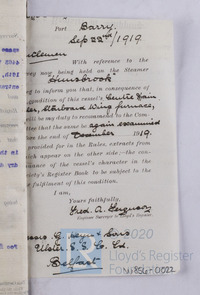 Port Barry,
Sep 22nd / 1919.
Gentlemen
With reference to the
now being held on the Steamer
"Gunsbrook"
to inform you that, in consequence of
condition of this vessel's Centre Main
Starboard Wing furnace,
will be my duty to recommend to the Com-
that the same be again examined
the end of December 1919.
provided for in the Rules, extracts from
which appear on the other side,—the con-
of the vessel's character in the
Register Book to be subject to the
fulfilment of this condition.
I am,
Yours faithfully,
Fred. A. Ferguson
Surveyor to Lloyd's Register
& Sons
Ulster S. S. Co. Ld.
Belfast
2020
Lloyd's Register
Foundation